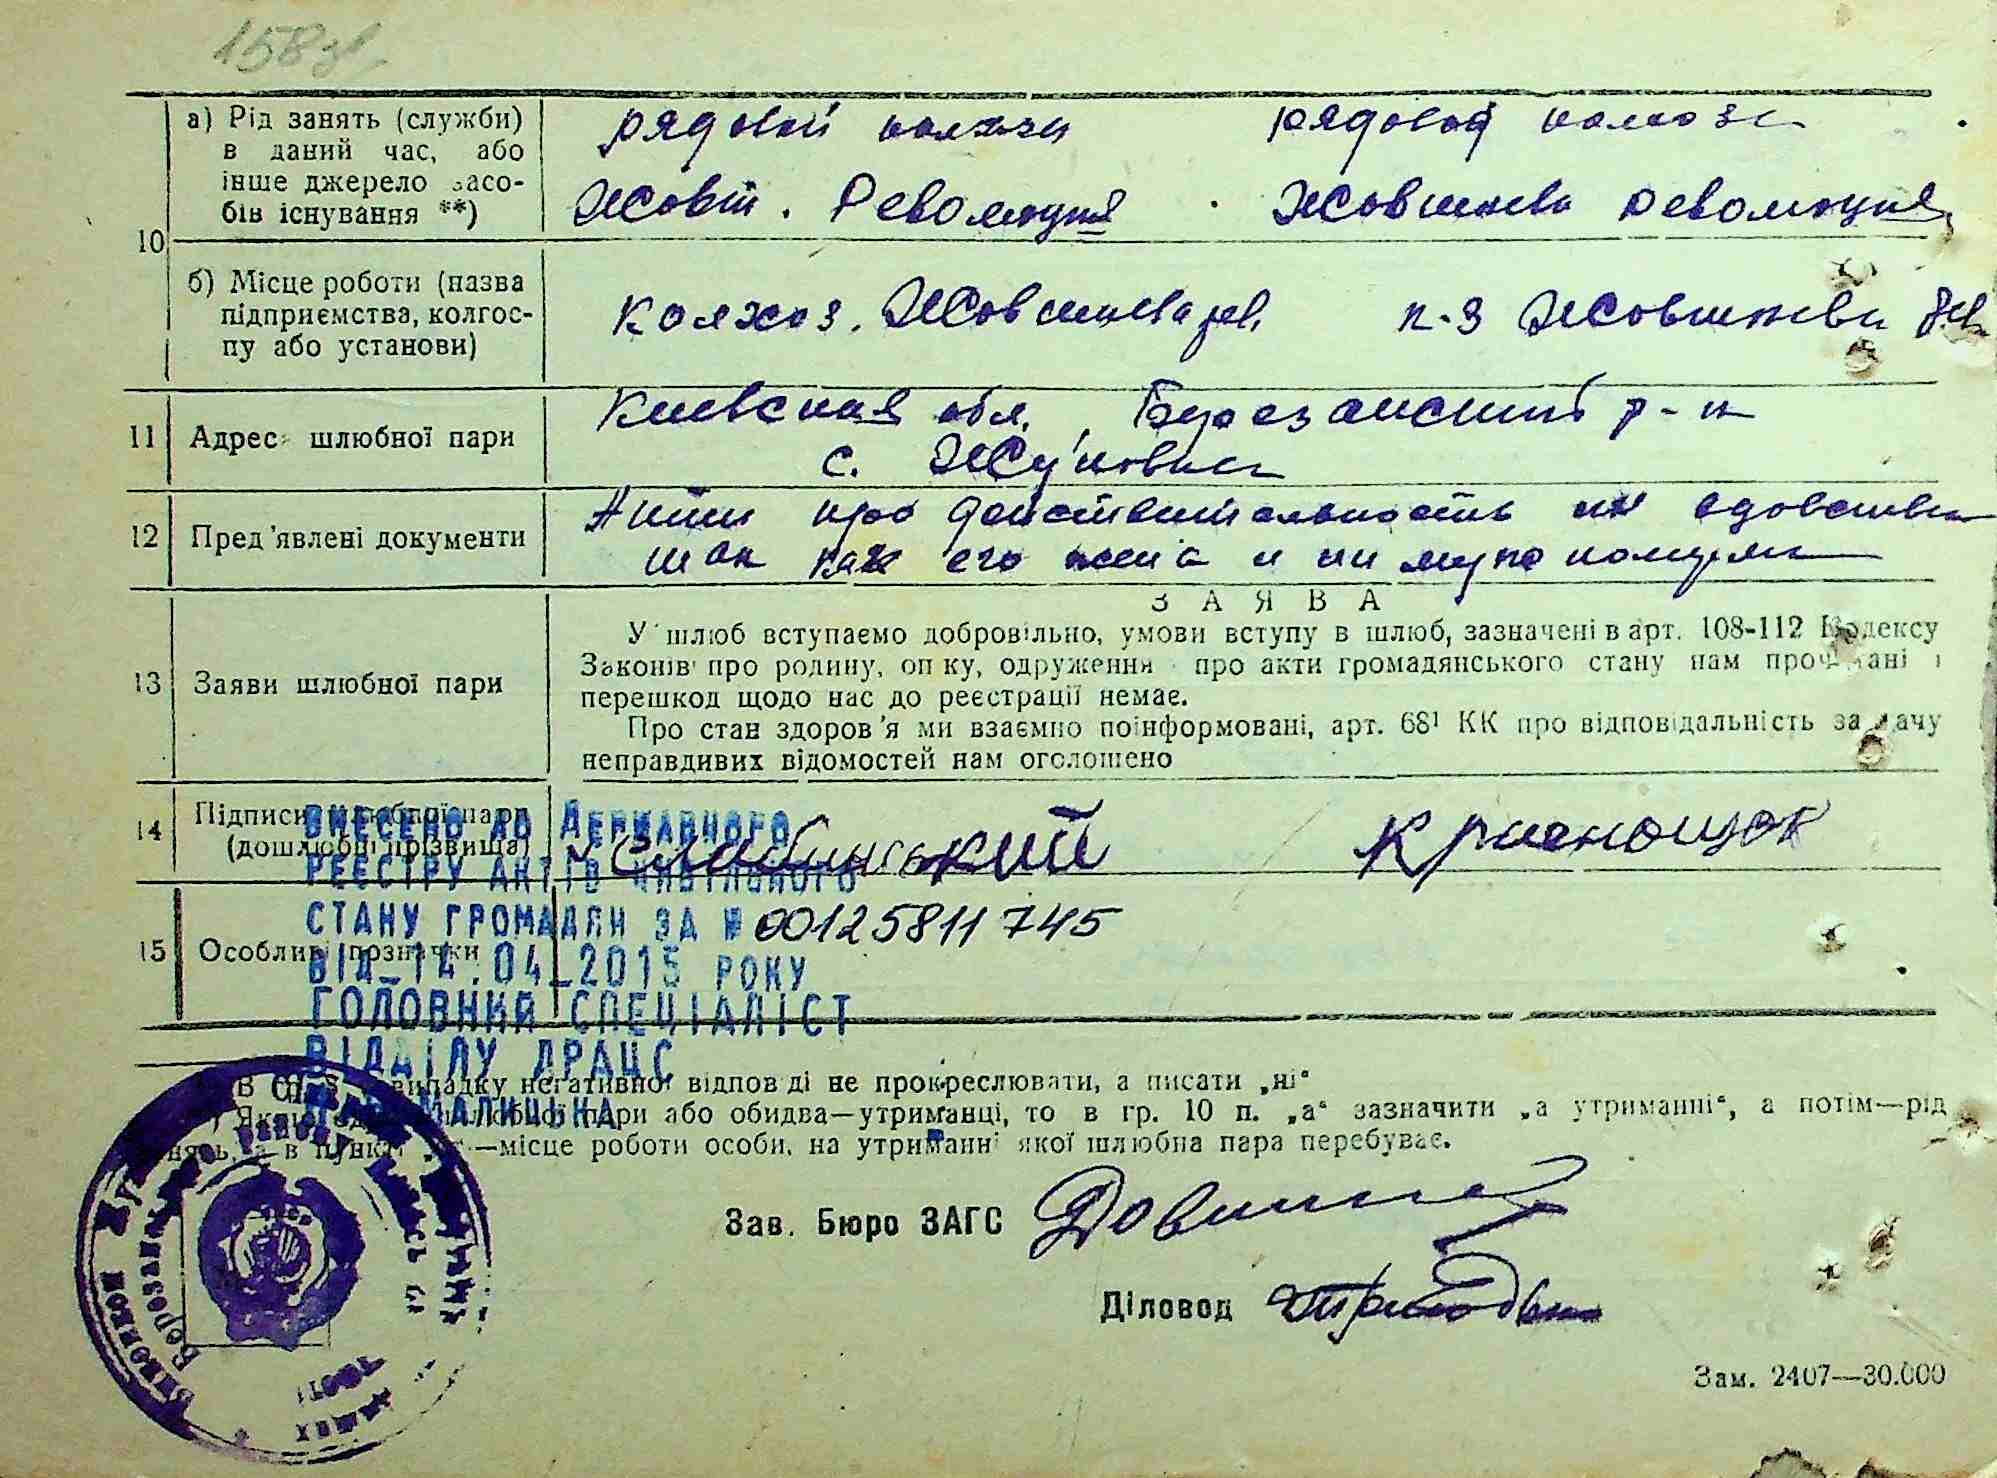 158зв
а) Рід занять (служби) в даний час, або інше джерело засобів існування **)
рядовой колхоз
рядовой колхоз
Жовт. Революция
Жовтнева революция
10
б) Місце роботи (назва підприємства, колгоспу або установи)
колхоз. Жовтнева рев.
к-з Жовтнева рев.
11 Адреса шлюбної пари
Киевская обл. Березанский р-н
с. Жуковка
12 Пред'явлені документи
Акти про действительность их вдовства
так как его жена и ии муж померли
З А Я В А
13 Заяви шлюбної пари
У шлюб вступаємо добровільно, умови вступу в шлюб, зазначені в арт. 108-112 Кодексу
Законів про родину, опіку, одруження про акти громадянського стану нам прочитані і
перешкод щодо нас до реєстрації немає.
Про стан здоров'я ми взаємно поінформовані, арт. 68¹ КК про відповідальність за дачу
неправдивих відомостей нам оголошено
14 Підписи шлюбної пари (дошлюбні прізвища)
Красношок
ВНЕСЕНО ДО ДЕРЖАВНОГО
РЕЄСТРУ АКТІВ ЦИВІЛЬНОГО
СТАНУ ГРОМАДЯН ЗА № 00125811745
15 Особливі позначки
ВІД 14.04 2015 РОКУ
ГОЛОВНИЙ СПЕЦІАЛІСТ
ВІДДІЛУ ДРАЦС
МАЛИЦЬКА
В випадку негативної відповіді не прокреслювати, а писати „ні“
Якщо пари або обидва—утриманці, то в гр. 10 п. „а“ зазначити „а утриманні“, а потім—рід
в пункті —місце роботи особи, на утриманні якої шлюбна пара перебуває.
Зав. Бюро ЗАГС
Діловод
Зам. 2407—30.000